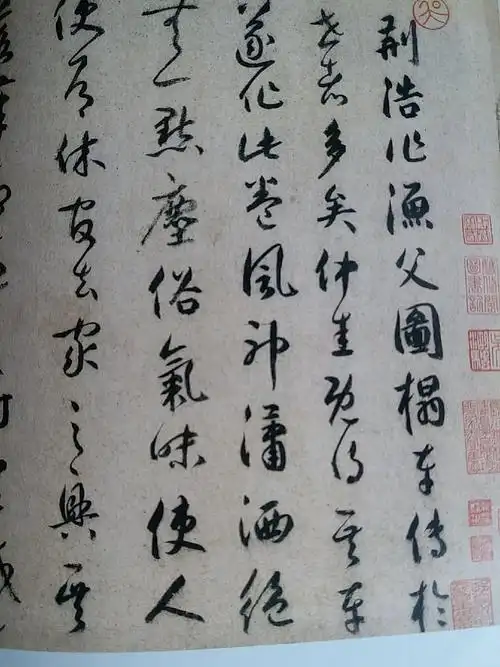 荆浩作漁父圖榻本傳於
世者多矣仲圭既得其本
遂作此卷風神瀟洒絕
無一點塵俗氣味使人
便有休官去家之興其